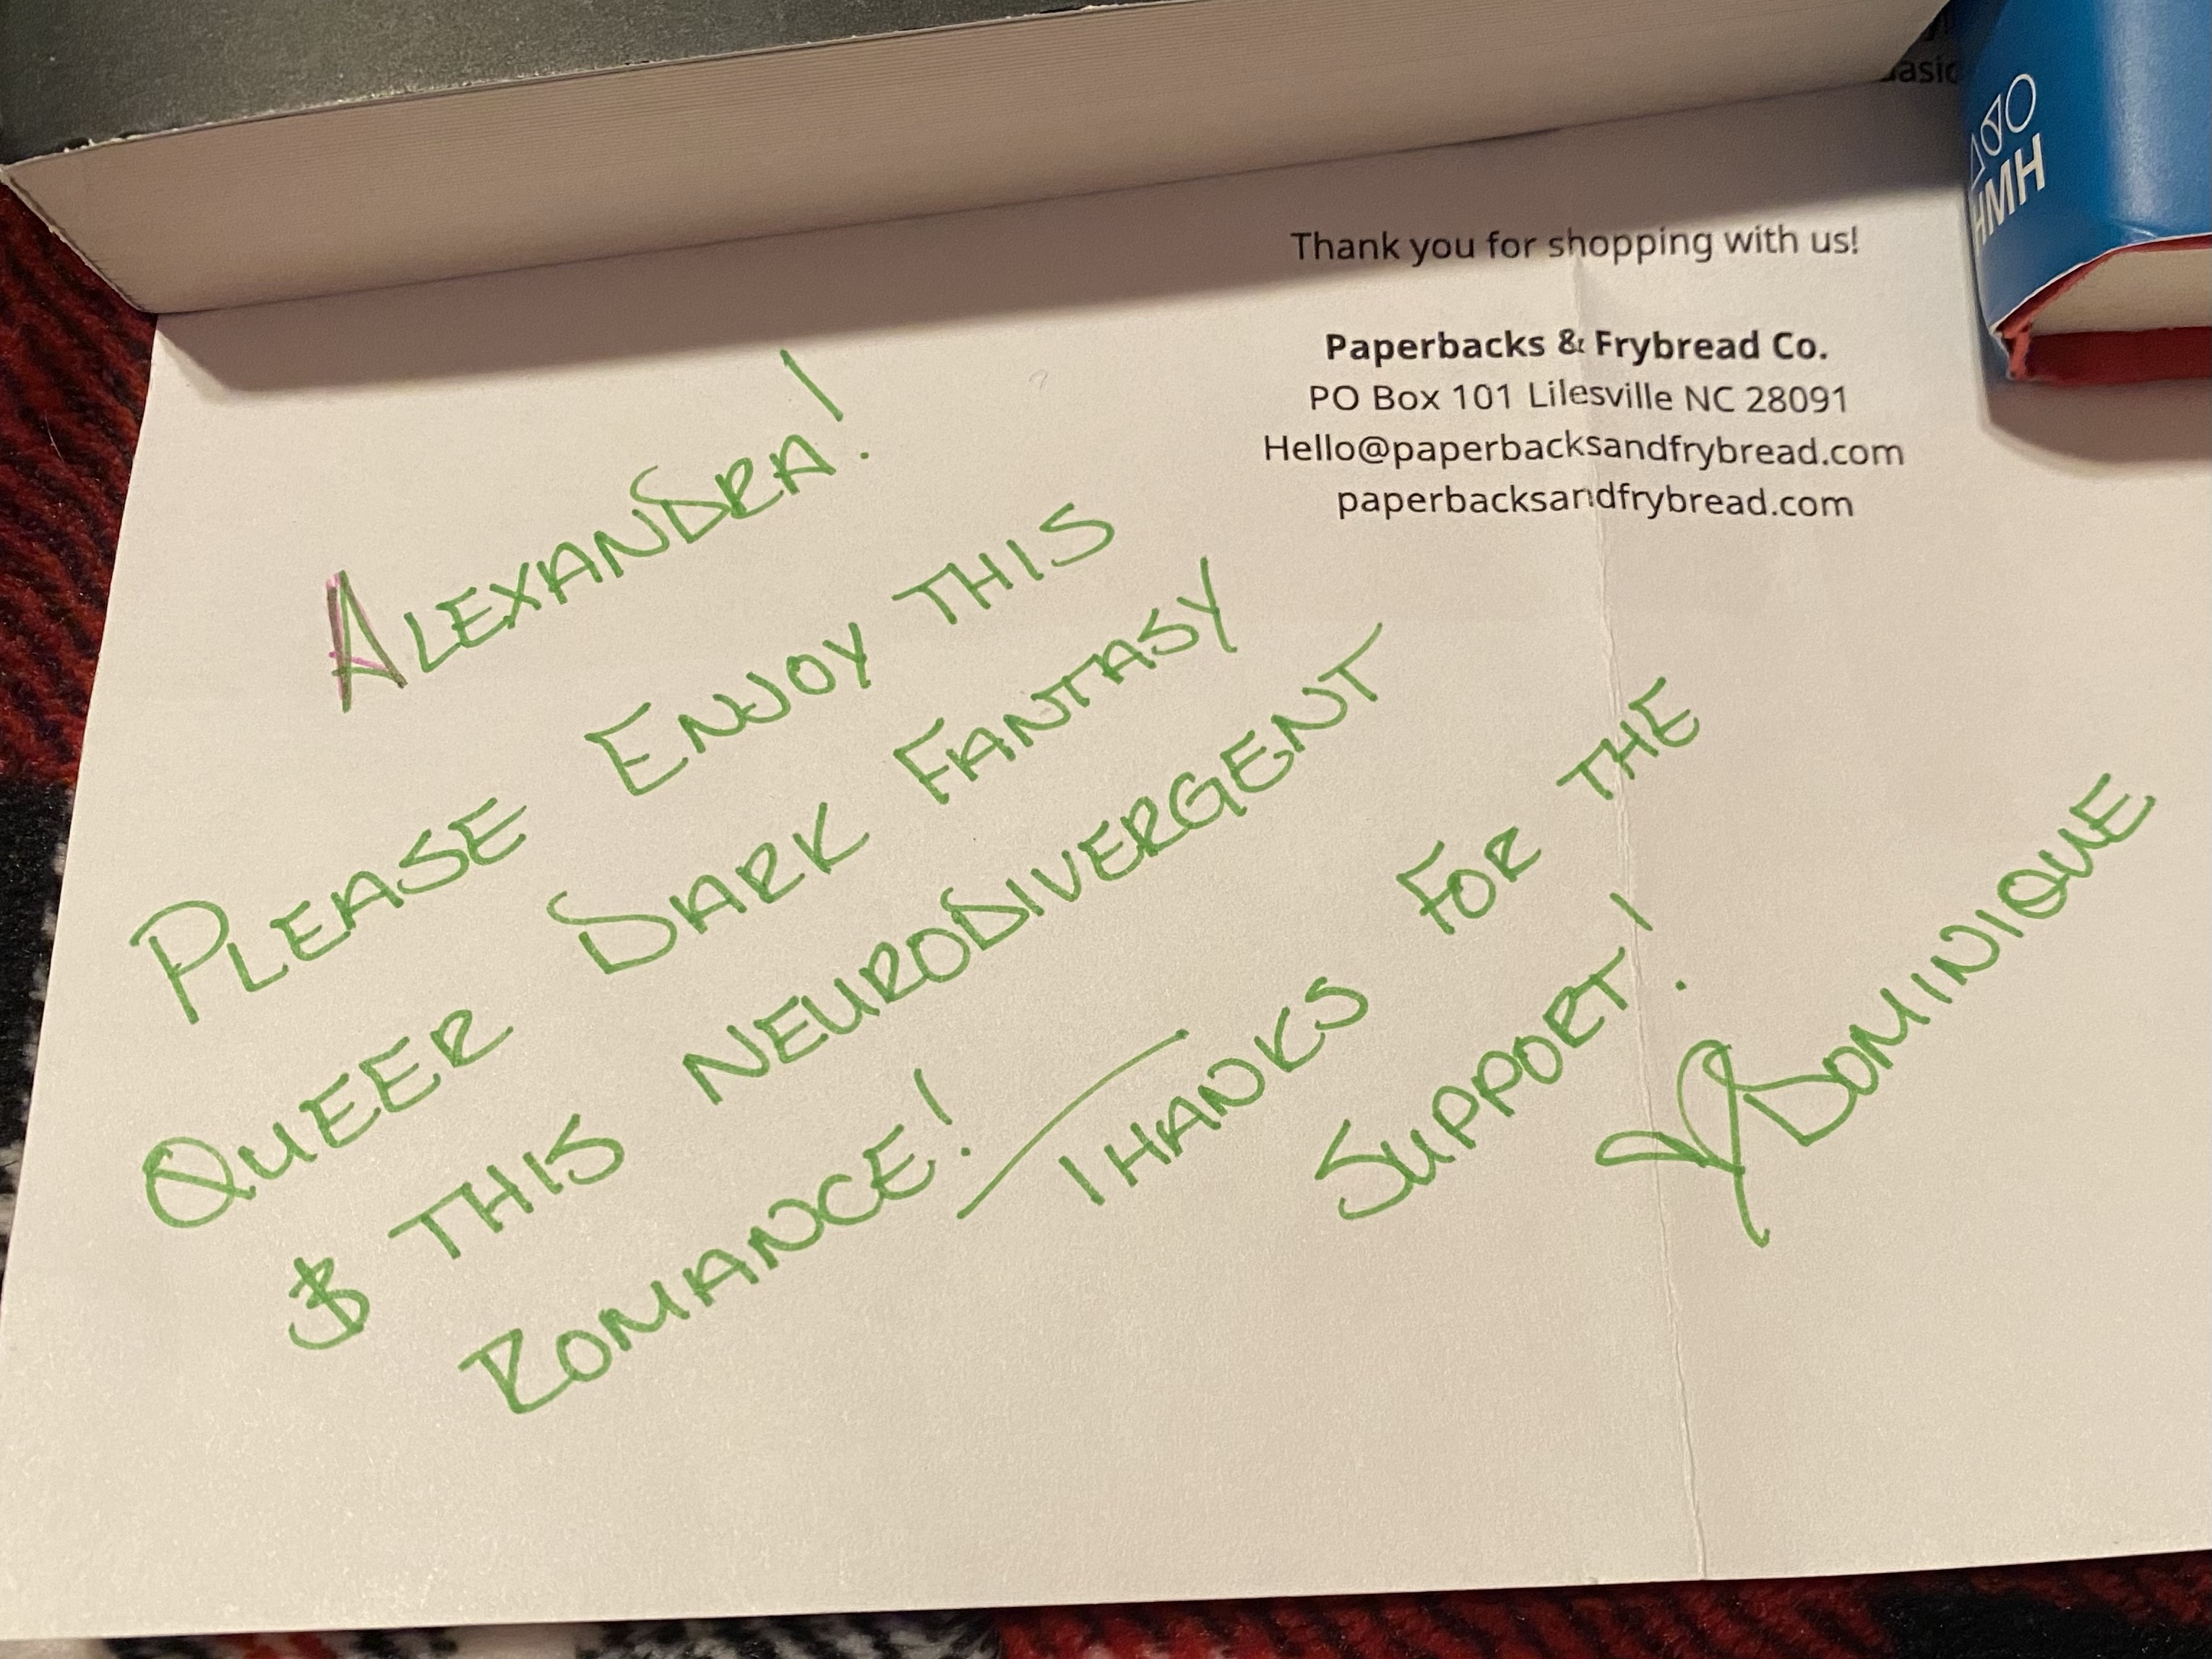 HMH
Thank you for shopping with us!
Paperbacks & Frybread Co.
PO Box 101 Lilesville NC 28091
Hello@paperbacksandfrybread.com
paperbacksandfrybread.com
ALEXANDRA!
PLEASE ENJOY THIS
QUEER DARK FANTASY
& THIS NEURODIVERGENT
ROMANCE! THANKS FOR THE
SUPPORT!
DOMINIQUE